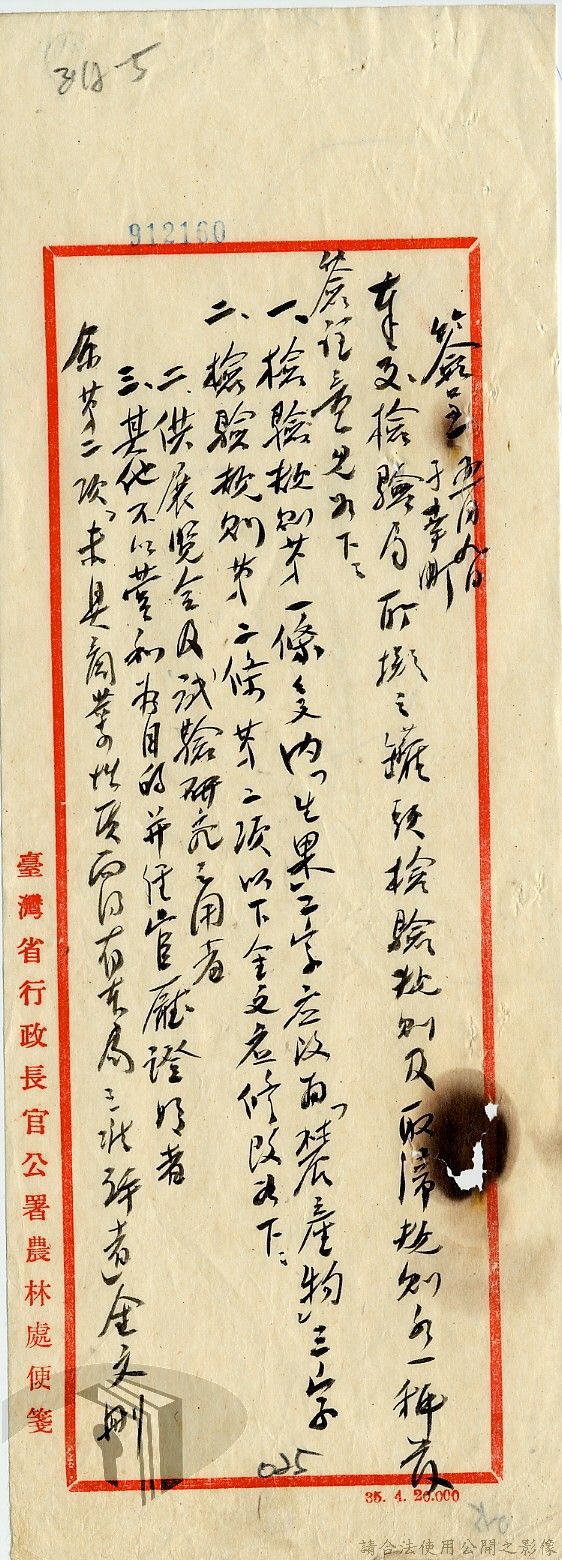 312-5
912160
簽呈 五月九日
于幸町
奉交檢驗局所擬之罐頭檢驗規則及取締規則各一種茲
簽註意見如下：
一、檢驗規則第一條文內「生果」二字应改為「農產物」三字
二、檢驗規則第二條第二項以下全文应修改如下：
二、供展覽会及試驗研究之用者
三、其他不以營利為目的并経官廳證明者
余第二項「未具商業性質而得有本局之准許者」全文刪
臺灣省行政長官公署農林處便箋
025
35. 4. 20.000
請合法使用公開之影像